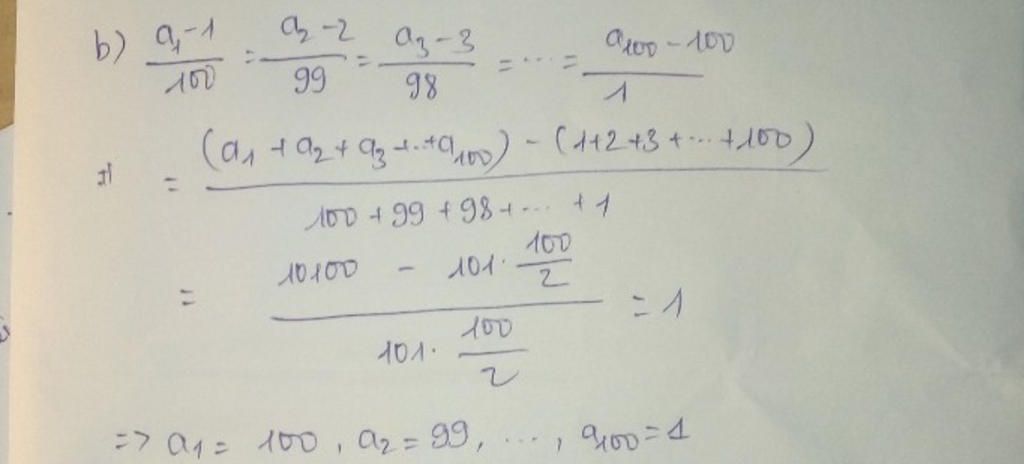 b) \frac{a_1-1}{100} = \frac{a_2-2}{99} = \frac{a_3-3}{98} = \cdots = \frac{a_{100}-100}{1}
= \frac{(a_1+a_2+a_3+..+a_{100}) - (1+2+3+\cdots+100)}{100+99+98+\cdots+1}
= \frac{10100 - 101 \cdot \frac{100}{2}}{101 \cdot \frac{100}{2}} = 1
=> a_1 = 100, a_2 = 99, \cdots, a_{100} = 1